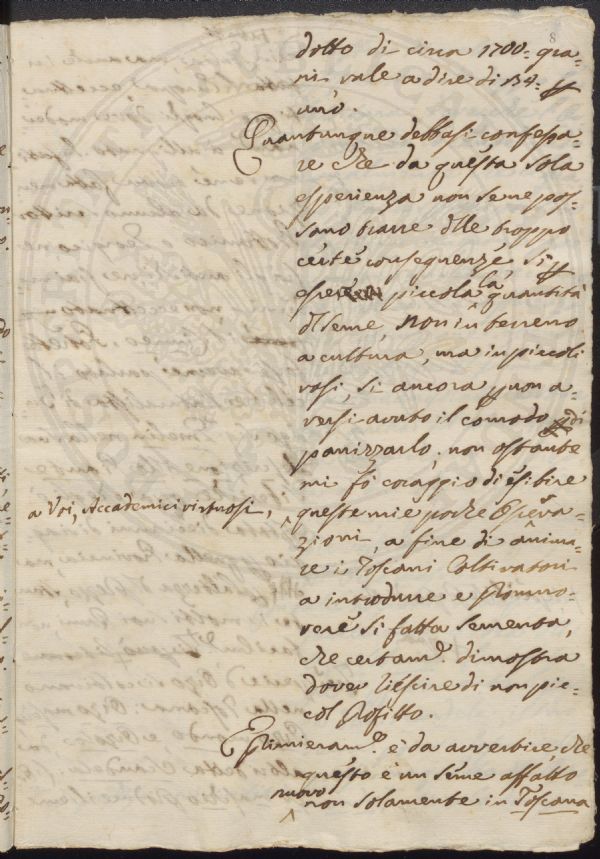 8
dotto di circa 1700 = gra=
ni vale a dire di 134 =
uno.
Quantunque debbasi confessa=
re che da questa sola
esperienza non se ne pos=
sano trarre delle troppo
certe conseguenze si p
essere piccola la quantità
di seme, non in terreno
a cultura, ma in piccoli
vasi, si ancora p non a=
versi avuto il comodo di
panizzarlo. non ostante
mi fò coraggio di esibire
a Voi, Accademici virtuosi,
queste mie poche osserva=
zioni, a fine di anima=
re i Toscani Coltivatori
a introdurre e Promuo=
vere si fatta sementa,
che certam.e dimostra
dover riescire di non pic=
col Profitto.
E Primieram.e è da avvertire, che
questo è un seme affatto
nuovo non solamente in Toscana